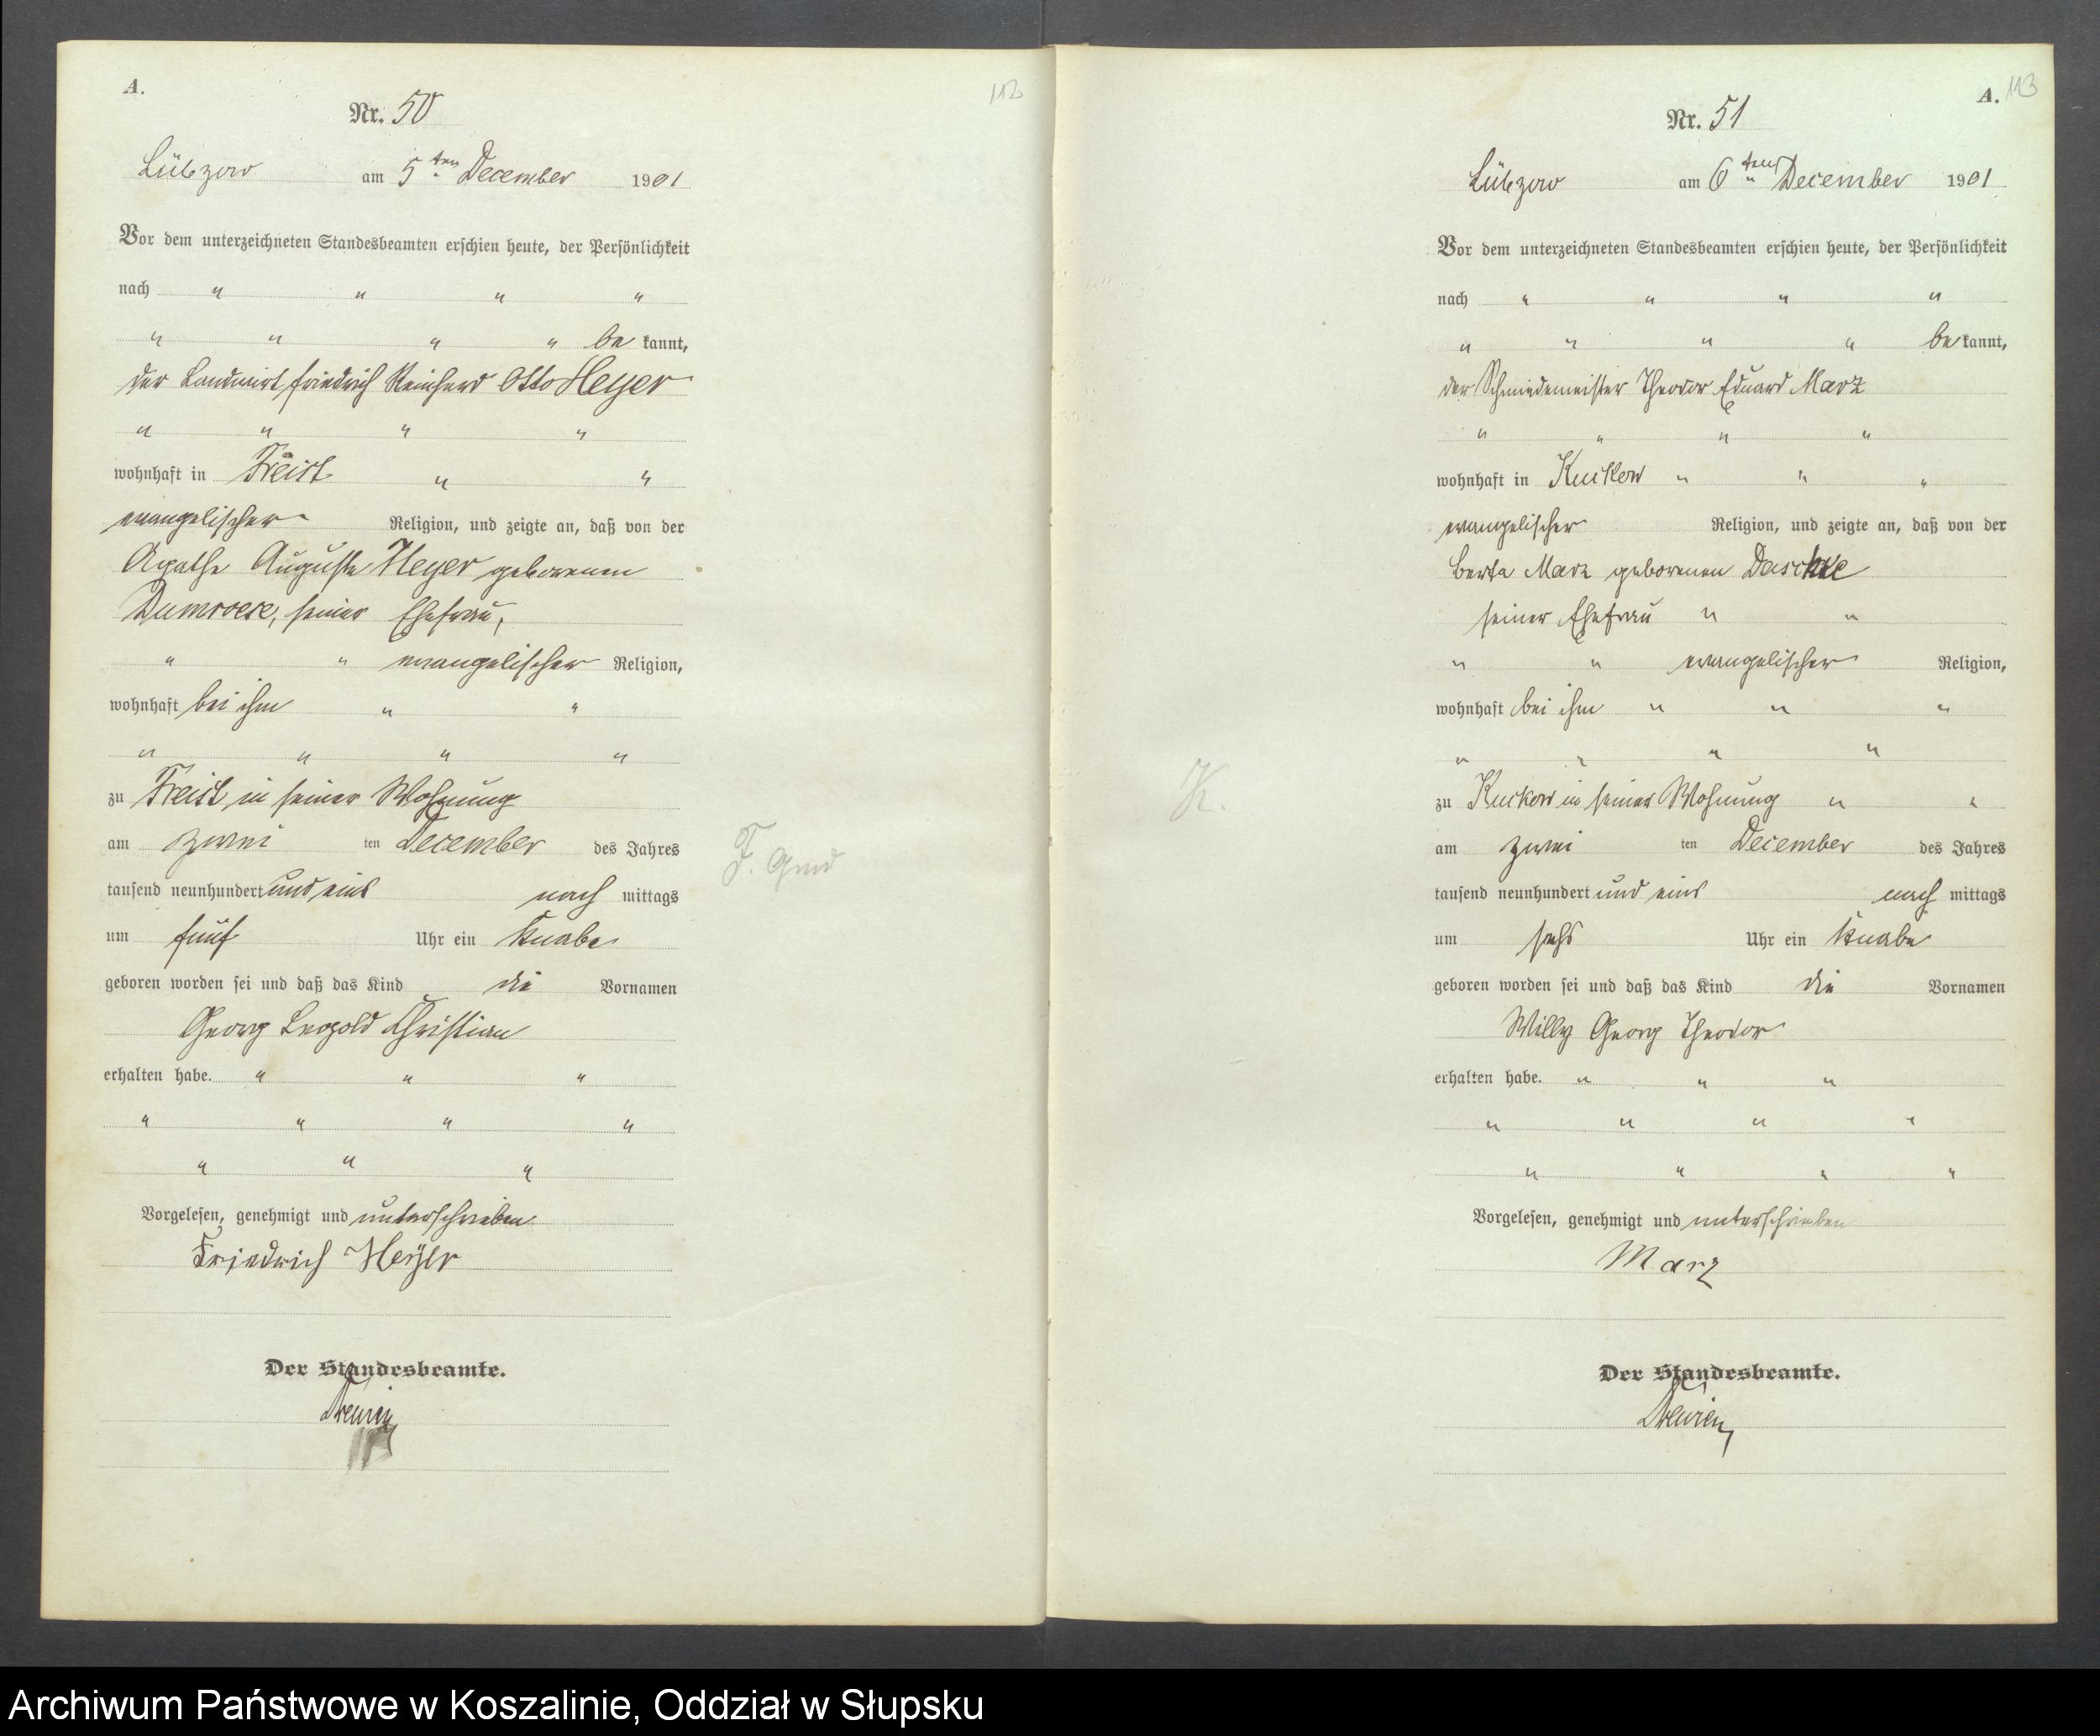 A.
Nr. 50
Lübzow am 5ten December 1901
Vor dem unterzeichneten Standesbeamten erschien heute, der Persönlichkeit
nach " " " "
" " " " be kannt,
der Landwirt Friedrich Reinhard Otto Heyer
" " " "
wohnhaft in Freist " "
evangelischer Religion, und zeigte an, daß von der
Agathe Auguste Heyer geborenen
Dumroese, seiner Ehefrau,
" " evangelischer Religion,
wohnhaft bei ihm " "
" " " "
zu Freist in seiner Wohnung
am zwei ten December des Jahres
tausend neunhundert und eins nach mittags
um fünf Uhr ein Knabe
geboren worden sei und daß das Kind die Vornamen
Georg Leopold Christian
erhalten habe. " " "
" " " "
" " "
Vorgelesen, genehmigt und unterschrieben
Friedrich Heyer
Der Standesbeamte.
113
A.
Nr. 51
Lübzow am 6ten December 1901
Vor dem unterzeichneten Standesbeamten erschien heute, der Persönlichkeit
nach " " " "
" " " " be kannt,
der Schmiedemeister Theodor Eduard Marz
" " " "
wohnhaft in Kuckow " " "
evangelischer Religion, und zeigte an, daß von der
Berta Marz geborenen Daschke
seiner Ehefrau " "
" " evangelischer Religion,
wohnhaft bei ihm " " "
" " " "
zu Kuckow in seiner Wohnung " "
am zwei ten December des Jahres
tausend neunhundert und eins nach mittags
um sechs Uhr ein Knabe
geboren worden sei und daß das Kind die Vornamen
Willy Georg Theodor
erhalten habe. " " "
" " " "
" " " "
Vorgelesen, genehmigt und unterschrieben
Marz
Der Standesbeamte.
K.
Archiwum Państwowe w Koszalinie, Oddział w Słupsku